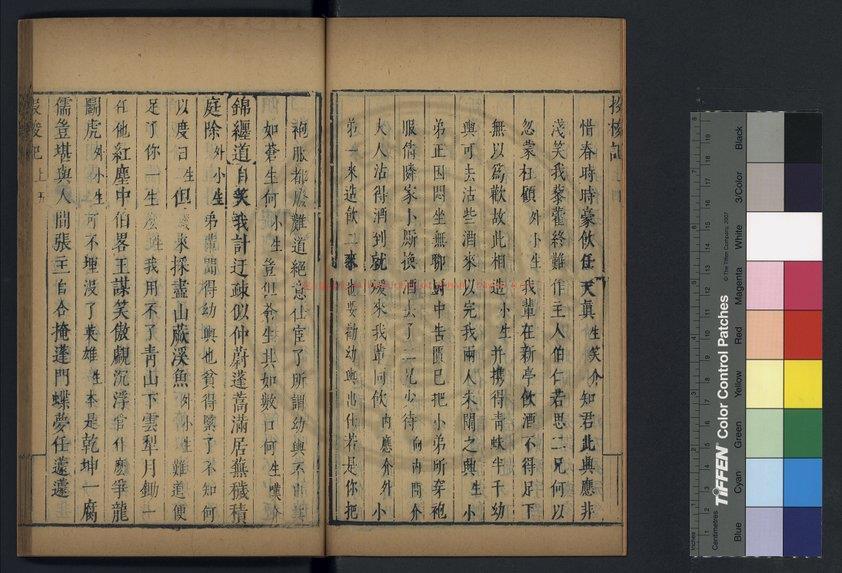 惜春時時蒙飲任天真 生笑介 知君此興應非
淺笑我藜藿終難作主人伯仁若思二兄何以
忽蒙枉顧 外小生 我輩在新亭飲酒不得足下
無以爲歡故此相造 小生 并攜得青蚨半千幼
輿可去沽些酒來以完我兩人未闌之興 生 小
弟正因悶坐無聊 中告匱已把小弟所穿袍
服倩鄰家小厮換酒去了二兄少待 向內問介
大人沽得酒到就 來我輩同飲 內應介外小
弟一來造飲二來 要勸幼輿出仕若是你把
袍服都 難道絕意仕宦了所謂幼輿不出
如蒼生何 小生 豈但蒼生其如數口何 生嘆介
錦纏道自笑我計迂疎似仲蔚蓬蒿滿居蕪穢積
庭除 外小生 弟輩聞得幼輿也貧得緊了不知何
以度日 生 但 來採盡山蕨溪魚 外小生 難道便
足了你一生 生 我用不了青山下雲犁月鋤一
任他紅塵中伯畧王謀笑傲覷沉浮官什麽爭龍
鬬虎 外小生 可不埋沒了英雄 生 本是乾坤一腐
儒豈堪與人間張主自合掩蓬門蝶夢任蘧蘧
Black
3/Color
White
Magenta
Red
Yellow
Green
Cyan
Blue
TIFFEN Color Control Patches
© The Tiffen Company, 2007
Centimetres
Inches